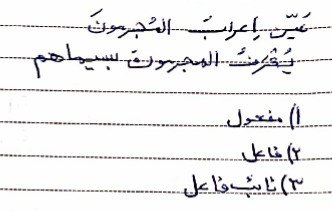 عَيّن إعرابَ المُجرمونَ
يُعْرَفُ المجرمون بسيماهم
١) مفعول
٢) فاعل
٣) نائب فاعل